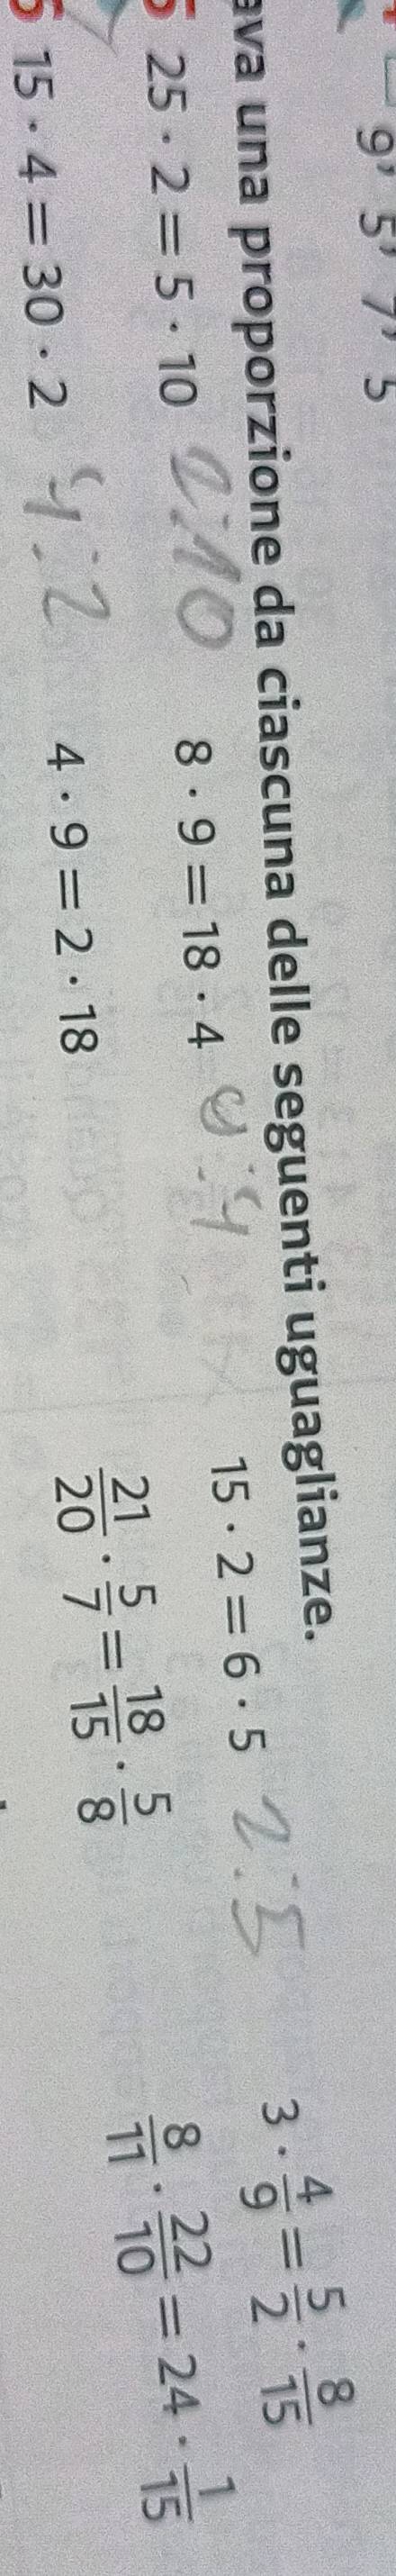 9' 5' 7' 5
ava una proporzione da ciascuna delle seguenti uguaglianze.
25 · 2 = 5 · 10 2:10 8 · 9 = 18 · 4 9:4 15 · 2 = 6 · 5 2:5 3 · 4/9 = 5/2 · 8/15
15 · 4 = 30 · 2 4:2 4 · 9 = 2 · 18 21/20 · 5/7 = 18/15 · 5/8 8/11 · 22/10 = 24 · 1/15